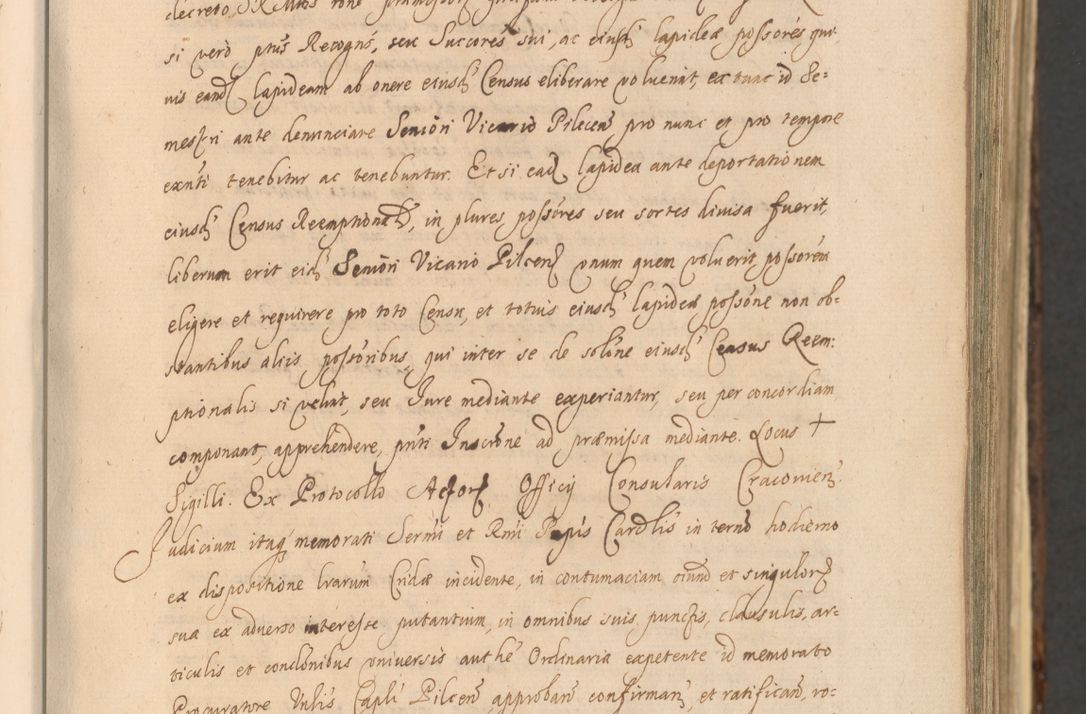 si verò ptus Recogns, seu Succores sui, ac eiusd lapideæ possores qui-
vis eand lapideam ab onere eiusd Census eliberare voluerit, ex tunc id Se-
mestri ante denunciare Seniori Vicario Pilcen pro nunc et pro tempore
exnti tenebitur ac tenebuntur. Et si ead lapidea ante deportationem
eiusd Census Reemptional, in plures possores seu sortes divisa fuerit,
liberum erit eid Seniori Vicario Pilcen unum quem voluerit possorem
eligere et requirere pro toto Censu, et totius eiusd lapideæ possone non ob-
stantibus aliis possoribus, qui inter se de solone eiusd Census Reem-
ptionalis si velint, seu Iure mediante experiantur, seu per concordiam
componant, apprehendere, pnti Inscrone ad præmissa mediante. Locus †
Sigilli. Ex Protocollo Actor Officij Consularis Cracovien.
Iudicium itaq memorati Sermi et Rmi Ppis Cardlis in terno hodierno
ex dispositione lrarum Cridæ incidente, in contumaciam oium et singulor
sua ex adverso interesse putantium, in omnibus suis punctis, clausulis, ar-
ticulis et conclonibus universis authe Ordinaria expetente id memorato
Procuratore Vnlis Capli Pilcen approban confirman, et ratifican, ro-